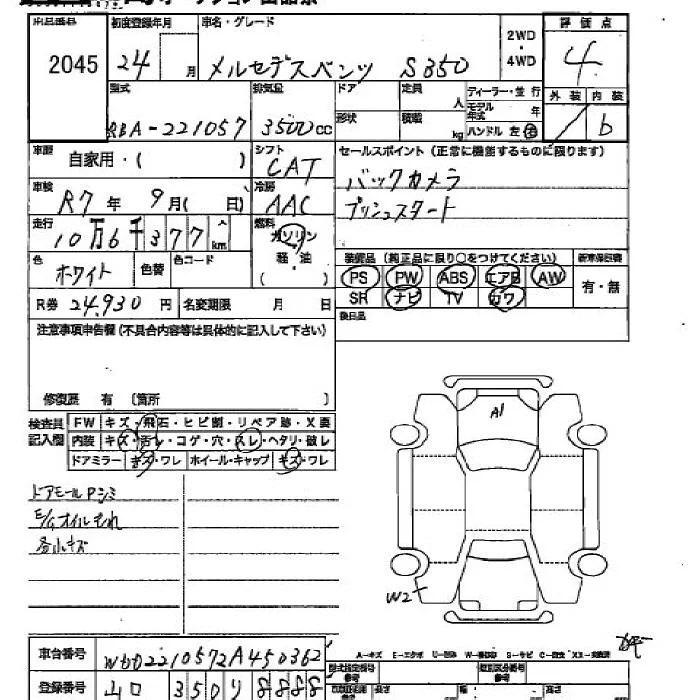 出品番号 初度登録年月 車名・グレード 2WD ・ 4WD 評価点
2045 24 月 メルセデスベンツ S350 4
型式 排気量 ドア 定員 人 ディーラー・並行 外装 内装
DBA-221057 3500cc 形状 積載 kg モデル年式 年 ハンドル 左・右 b
車歴 自家用・( ) シフト CAT セールスポイント (正常に機能するものに限ります)
車検 R7年 9月( 日) 冷房 AAC バックカメラ
走行 10万6千377km 燃料 ガソリン プッシュスタート
軽・油
色 ホワイト 色替 色コード ( ) 装備品 (純正品に限り○をつけてください) 新車保証書
PS PW ABS エアB AW 有・無
R券 24,930円 名変期限 月 日 SR ナビ TV カワ
注意事項申告欄(不具合内容等は具体的に記入して下さい) 後日品
修復歴 有 〔箇所 〕
検査員記入欄 FW キズ・飛石・ヒビ割・リペア跡・X要
内装 キズ・汚レ・コゲ・穴・スレ・ヘタリ・破レ
ドアミラー キズ・ワレ ホイール・キャップ キズ・ワレ
A1
ドアモールPシミ
E/Gオイルもれ
各小キズ
W2
車台番号 WDD2210572A450362
登録番号 山口 350 り 8888